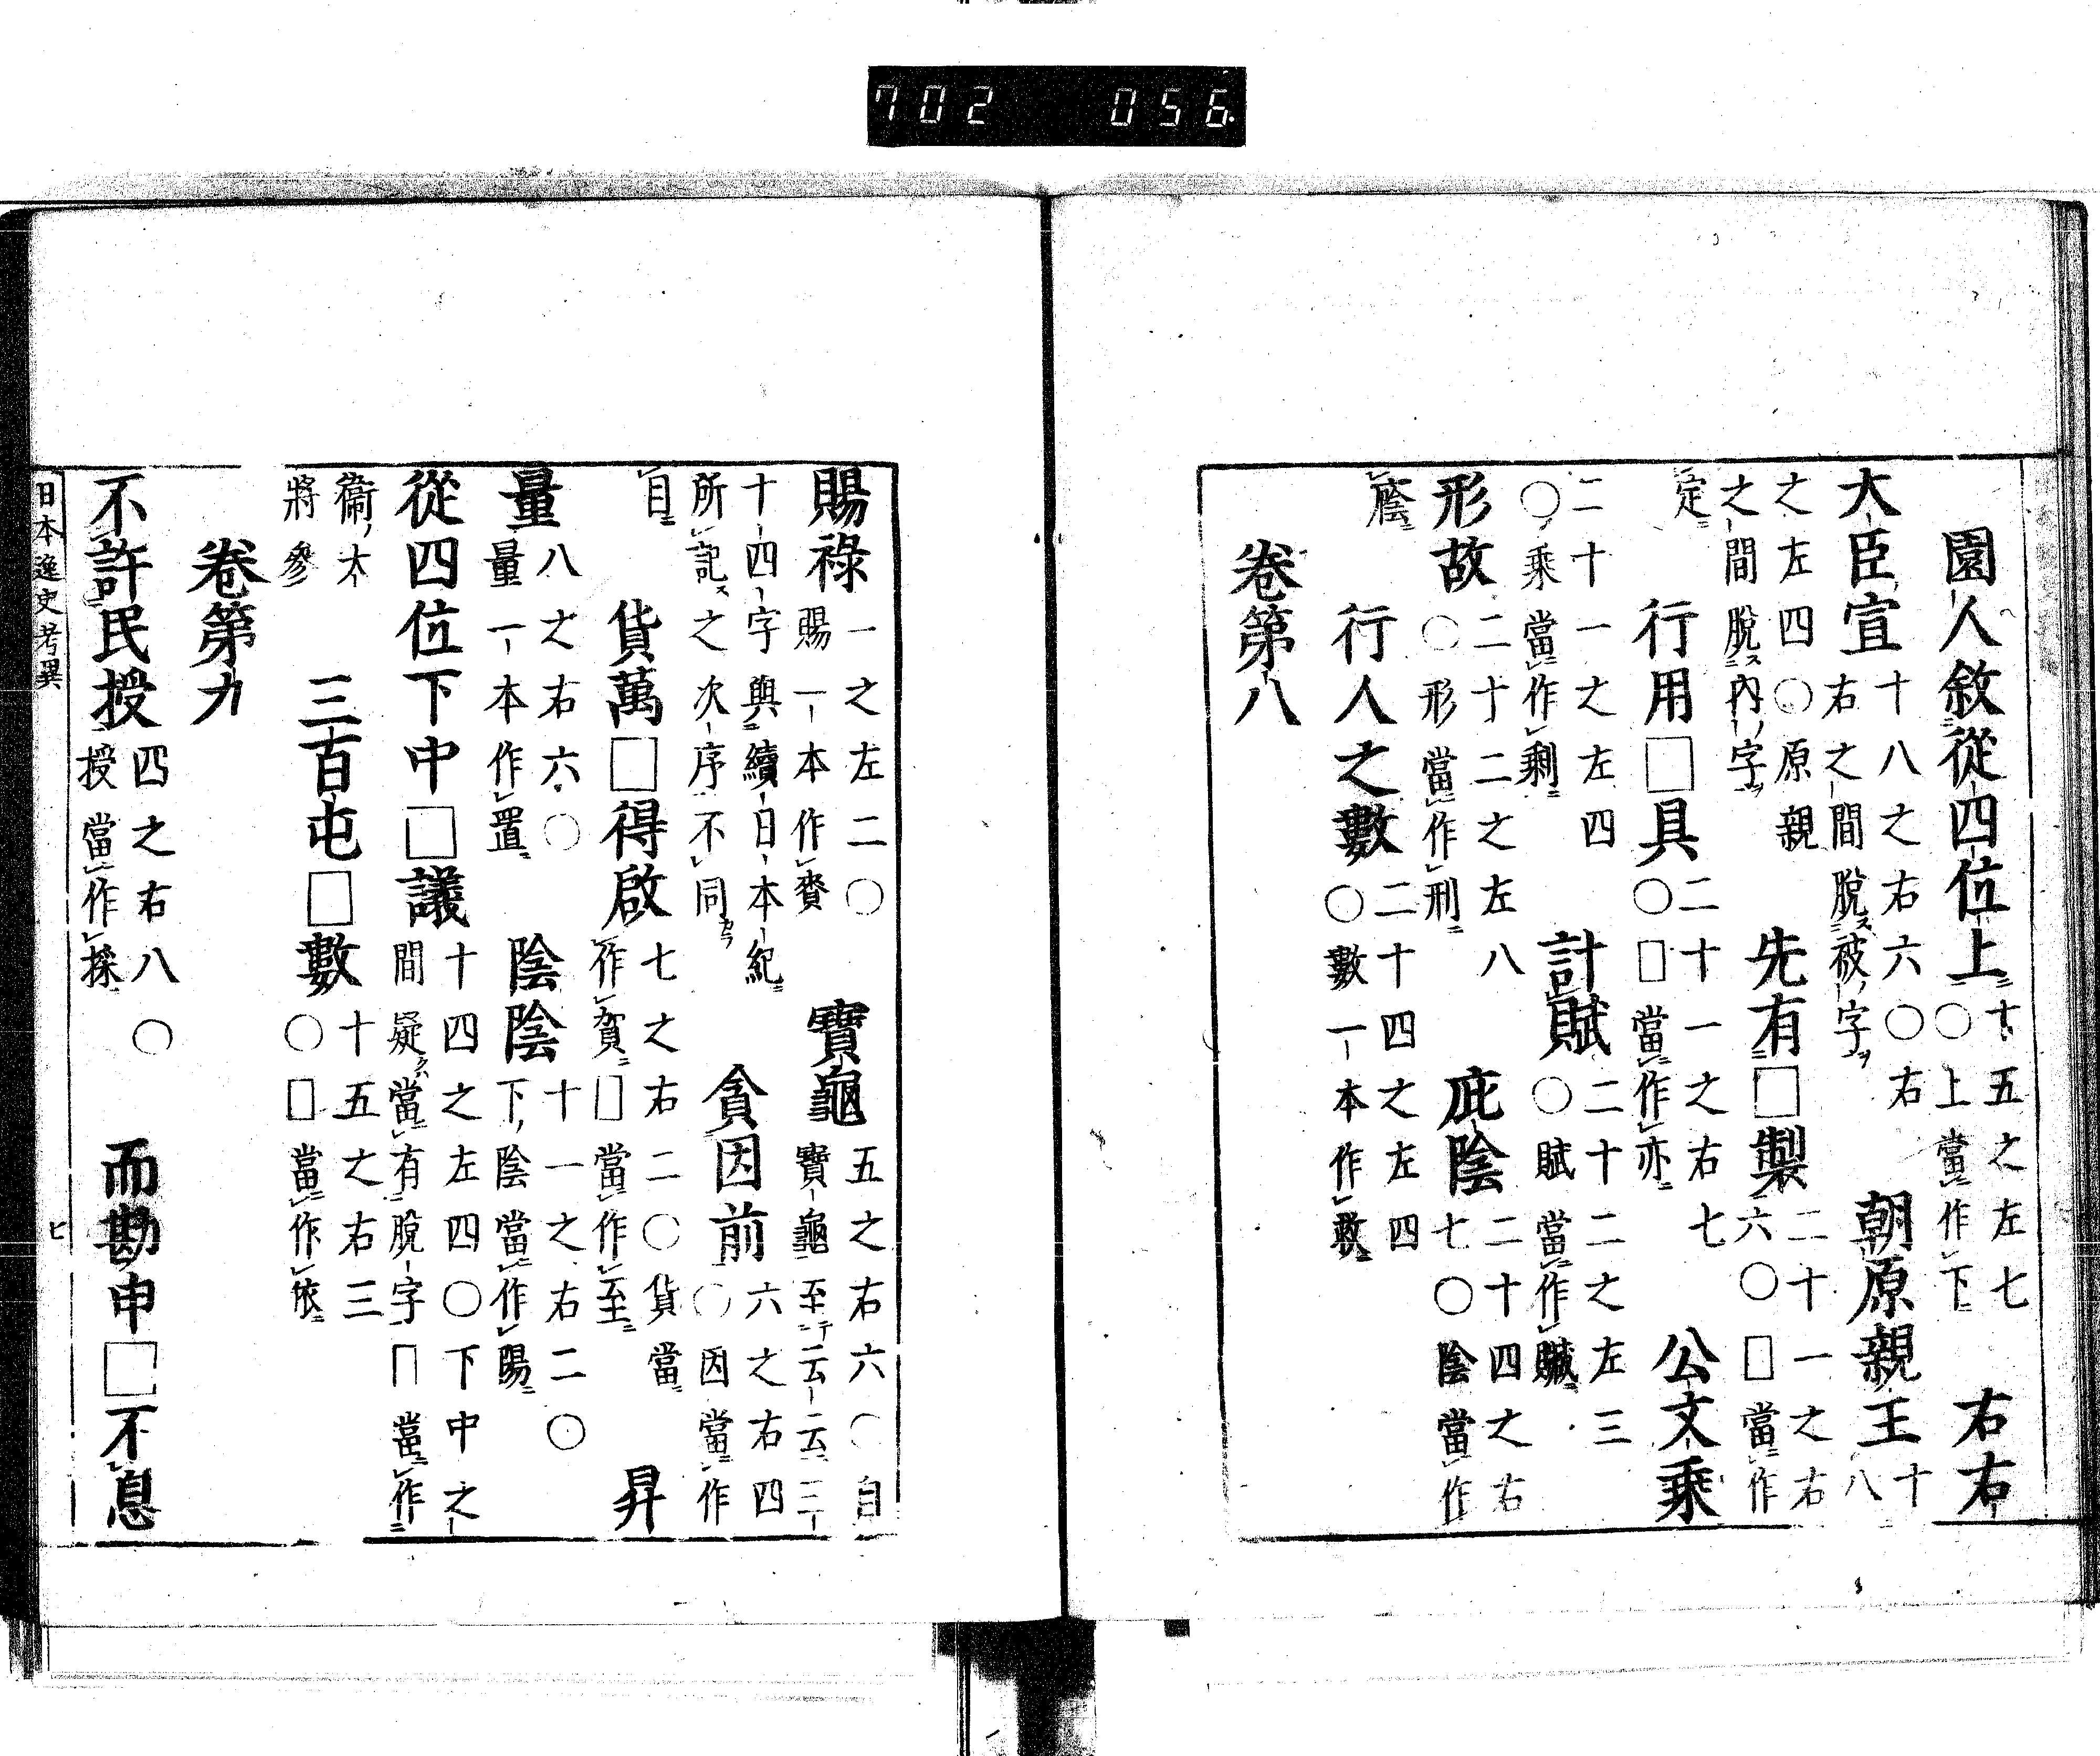 702 056
園人敘從四位上 十五之左七 ○上當作下 右右
大臣宣 十八之右六○右 右之間脫被字 朝原親王 十八
之左四○原親 之間脫內字 先有□製 二十一之右 六○□當作
定 行用□具 二十一之右七 ○□當作亦 公文乘
二十一之左四 ○乘當作剩 計賦 二十二之左三 ○賦當作贓
形故 二十二之左八 ○形當作刑 庇陰 二十四之右 七○陰當作
廕 行人之數 二十四之左四 ○數一本作敷
卷第八
賜祿 一之左二○ 賜一本作賚 寶龜 五之右六○自 寶龜至云云三
十四字與續日本紀 所記之次序不同 貪因前 六之右四 ○因當作
自 貨萬□得啟 七之右二○貨當 作貿□當作至 昇
量 八之右六○ 量一本作置 陰陰 十一之右二○ 下陰當作陽
從四位下中□議 十四之左四○下中之 間疑當有脫字□當作
衞大 將參 三百屯□數 十五之右三 ○□當作依
卷第九
不許民授 四之右八○ 授當作採 而勘申□不息
日本逸史考異 七